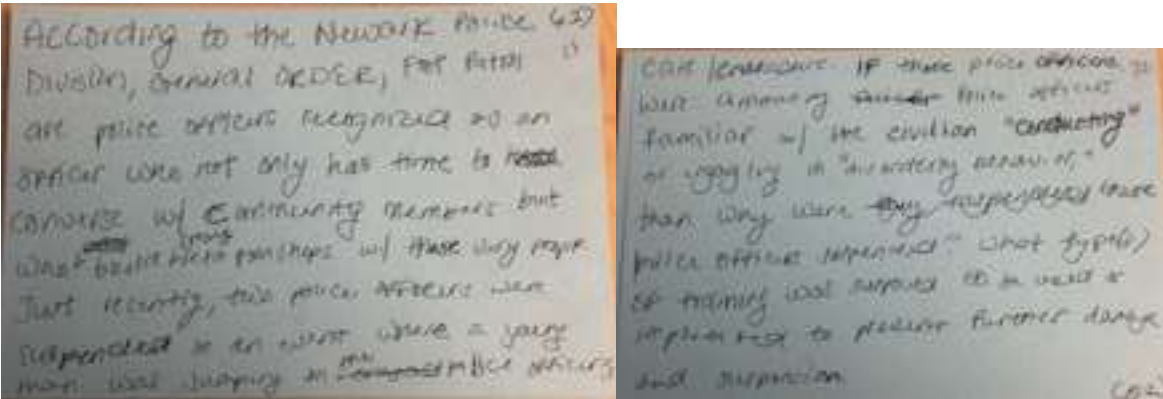 According to the Newark Police
Division, General ORDER, Foot Patrol
are police officers recognized as an
officer who not only has time to
converse w/ Community members but
what relationships w/ those very people
Just recently, two police officers were
suspended in an event where a young
man was jumping on police officers
car/ IF those police officers
were among police officers
familiar w/ the civilian "conducting"
or engaging in "disorderly behavior,"
than why were those
police officers suspended" what type(s)
of training was supposed to be used or
implemented to prevent further damage
and suspension